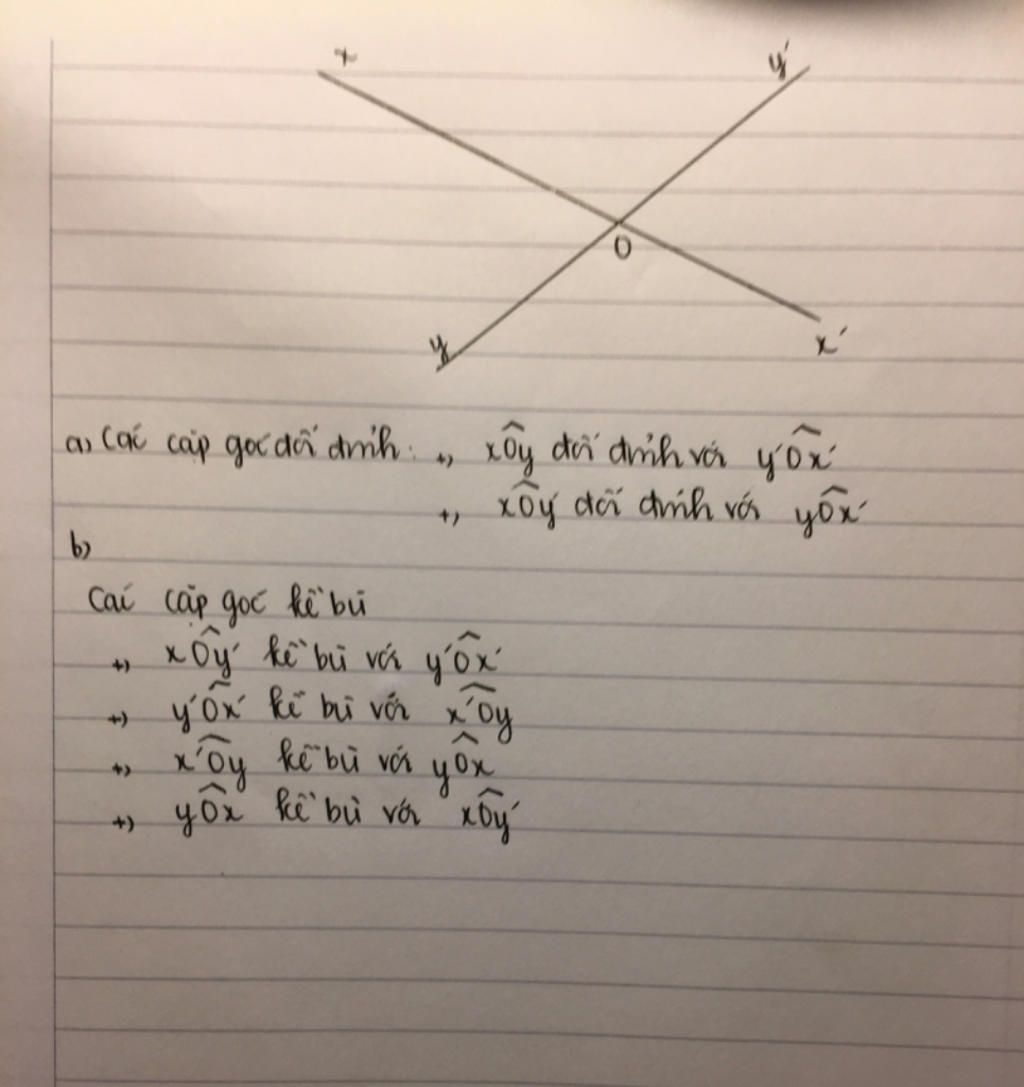 x
y'
O
y
x'
a, Các cặp góc đối đỉnh: +, xÔy đối đỉnh với y'Ôx'
+, xÔy' đối đỉnh với yÔx'
b)
Các cặp góc kề bù
+) xÔy' kề bù với y'Ôx'
+) y'Ôx' kề bù với x'Ôy
+) x'Ôy kề bù với yÔx
+) yÔx kề bù với xÔy'